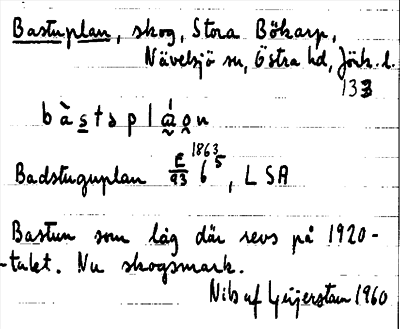 Bastuplan, skog, Stora Bökarp,
Nävelsjö sn, Östra hd, Jönk. l.
133
bàstəplán
Badstuguplan E/93 1863 6 5, LSA
Bastun som låg där revs på 1920-
-talet. Nu skogsmark.
Nils af Geijerstam 1960